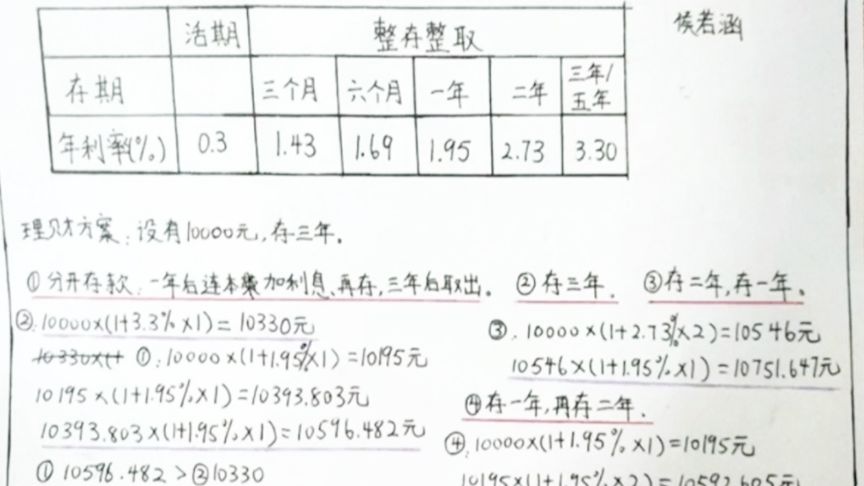 侯若涵
活期 整存整取
存期 三个月 六个月 一年 二年 三年/五年
年利率(%) 0.3 1.43 1.69 1.95 2.73 3.30
理财方案:设有10000元,存三年。
①分开存款,一年后连本加利息,再存,三年后取出。 ②存三年. ③存二年,存一年。
②:10000×(1+3.3%×1)=10330元
①:10000×(1+1.95%×1)=10195元
10195×(1+1.95%×1)=10393.803元
10393.803×(1+1.95%×1)=10596.482元
①10596.482>②10330
③.10000×(1+2.73%×2)=10546元
10546×(1+1.95%×1)=10751.647元
④存一年,再存二年.
④.10000×(1+1.95%×1)=10195元
10195×(1+1.95%×2)=10592.605元